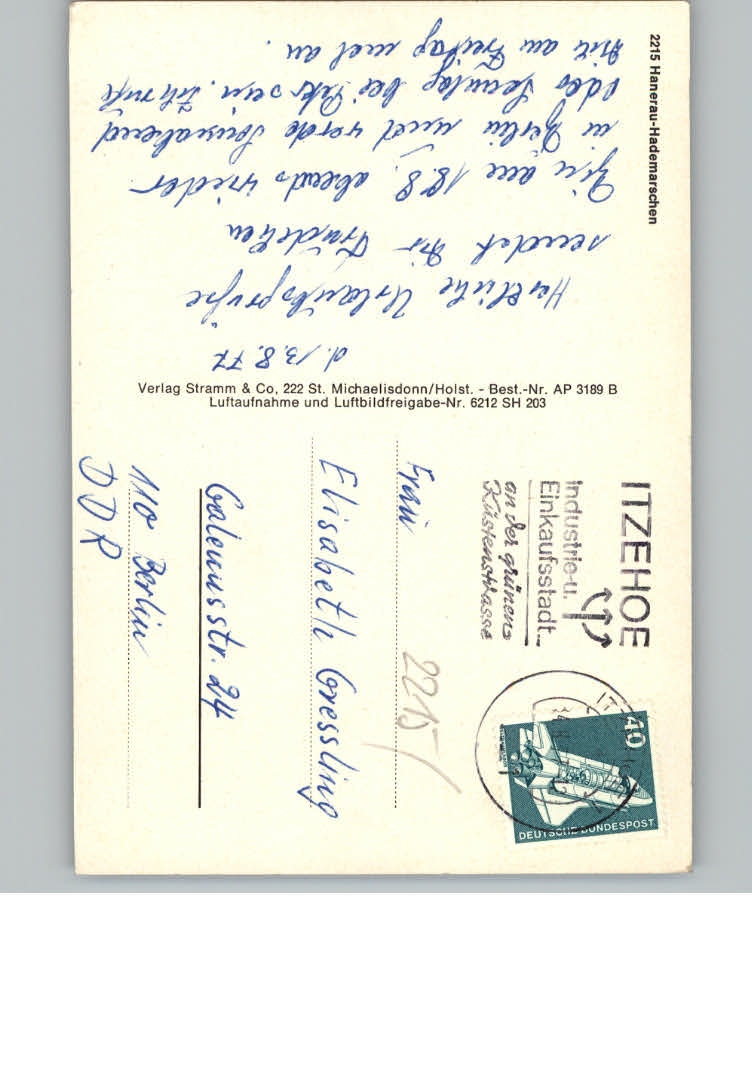 2215 Hanerau-Hademarschen
d. 13.8.77
Herzliche Urlaubsgrüße
sendet Dir Trudchen
Bin am 18.8. abends wieder
in Berlin und werde Sonnabend
oder Sonntag bei sein. Ich rufe
Dich am Freitag mal an.
Verlag Stramm & Co, 222 St. Michaelisdonn/Holst. - Best.-Nr. AP 3189 B
Luftaufnahme und Luftbildfreigabe-Nr. 6212 SH 203
ITZEHOE
Industrie-u.
Einkaufsstadt
an der grünen
Küstenstrasse
40
DEUTSCHE BUNDESPOST
2215
Frau
Elisabeth Gressling
Galenusstr. 24
110 Berlin
DDR